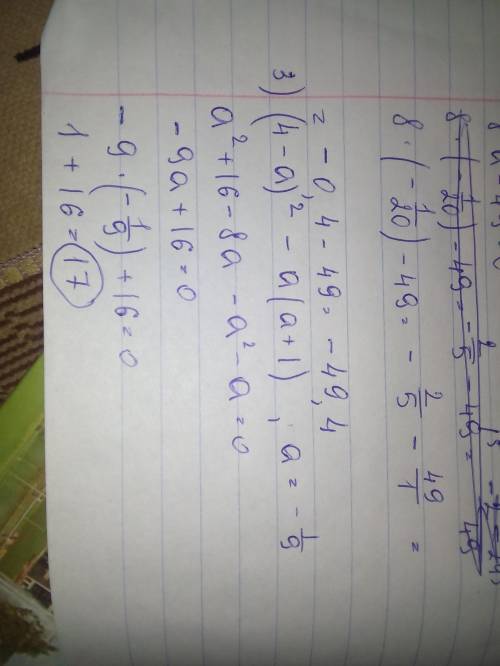 8 · (-1/20) - 49 = -2/5 - 49/1 =
= -0,4 - 49 = -49,4
3) (4-a)² - a(a+1), a = -1/9
a² + 16 - 8a - a² - a = 0
-9a + 16 = 0
-9 · (-1/9) + 16 = 0
1 + 16 = 17